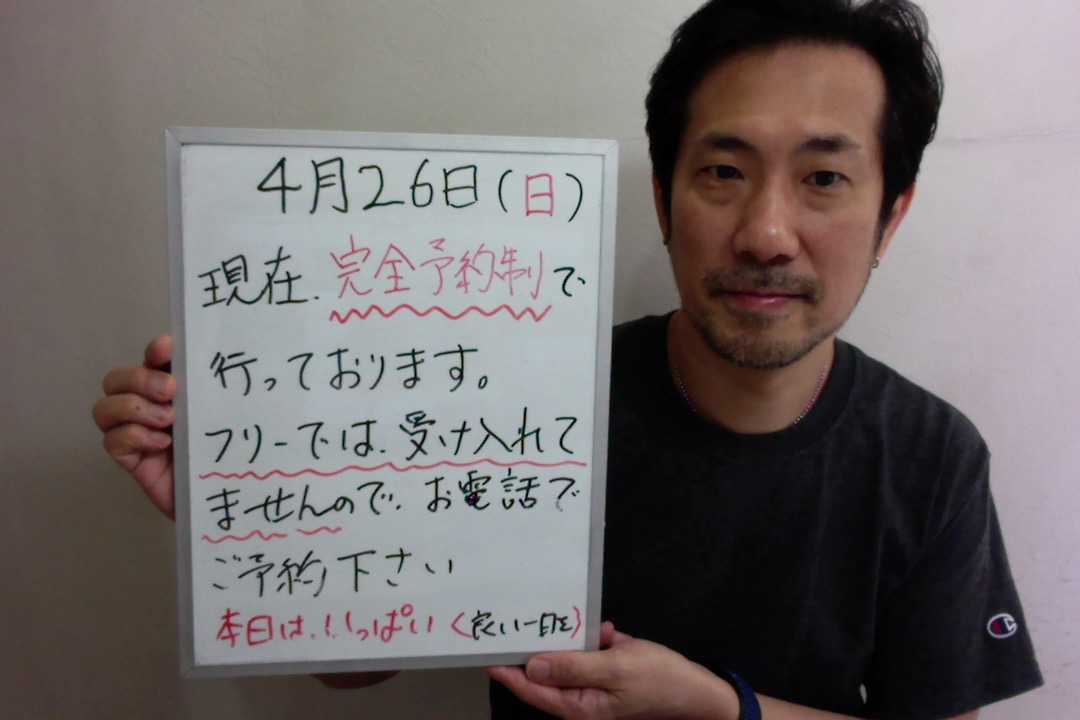 4月26日(日)
現在、完全予約制で
行っております。
フリーでは、受け入れて
ませんので、お電話で
ご予約下さい
本日は、いっぱい〈良い一日を〉